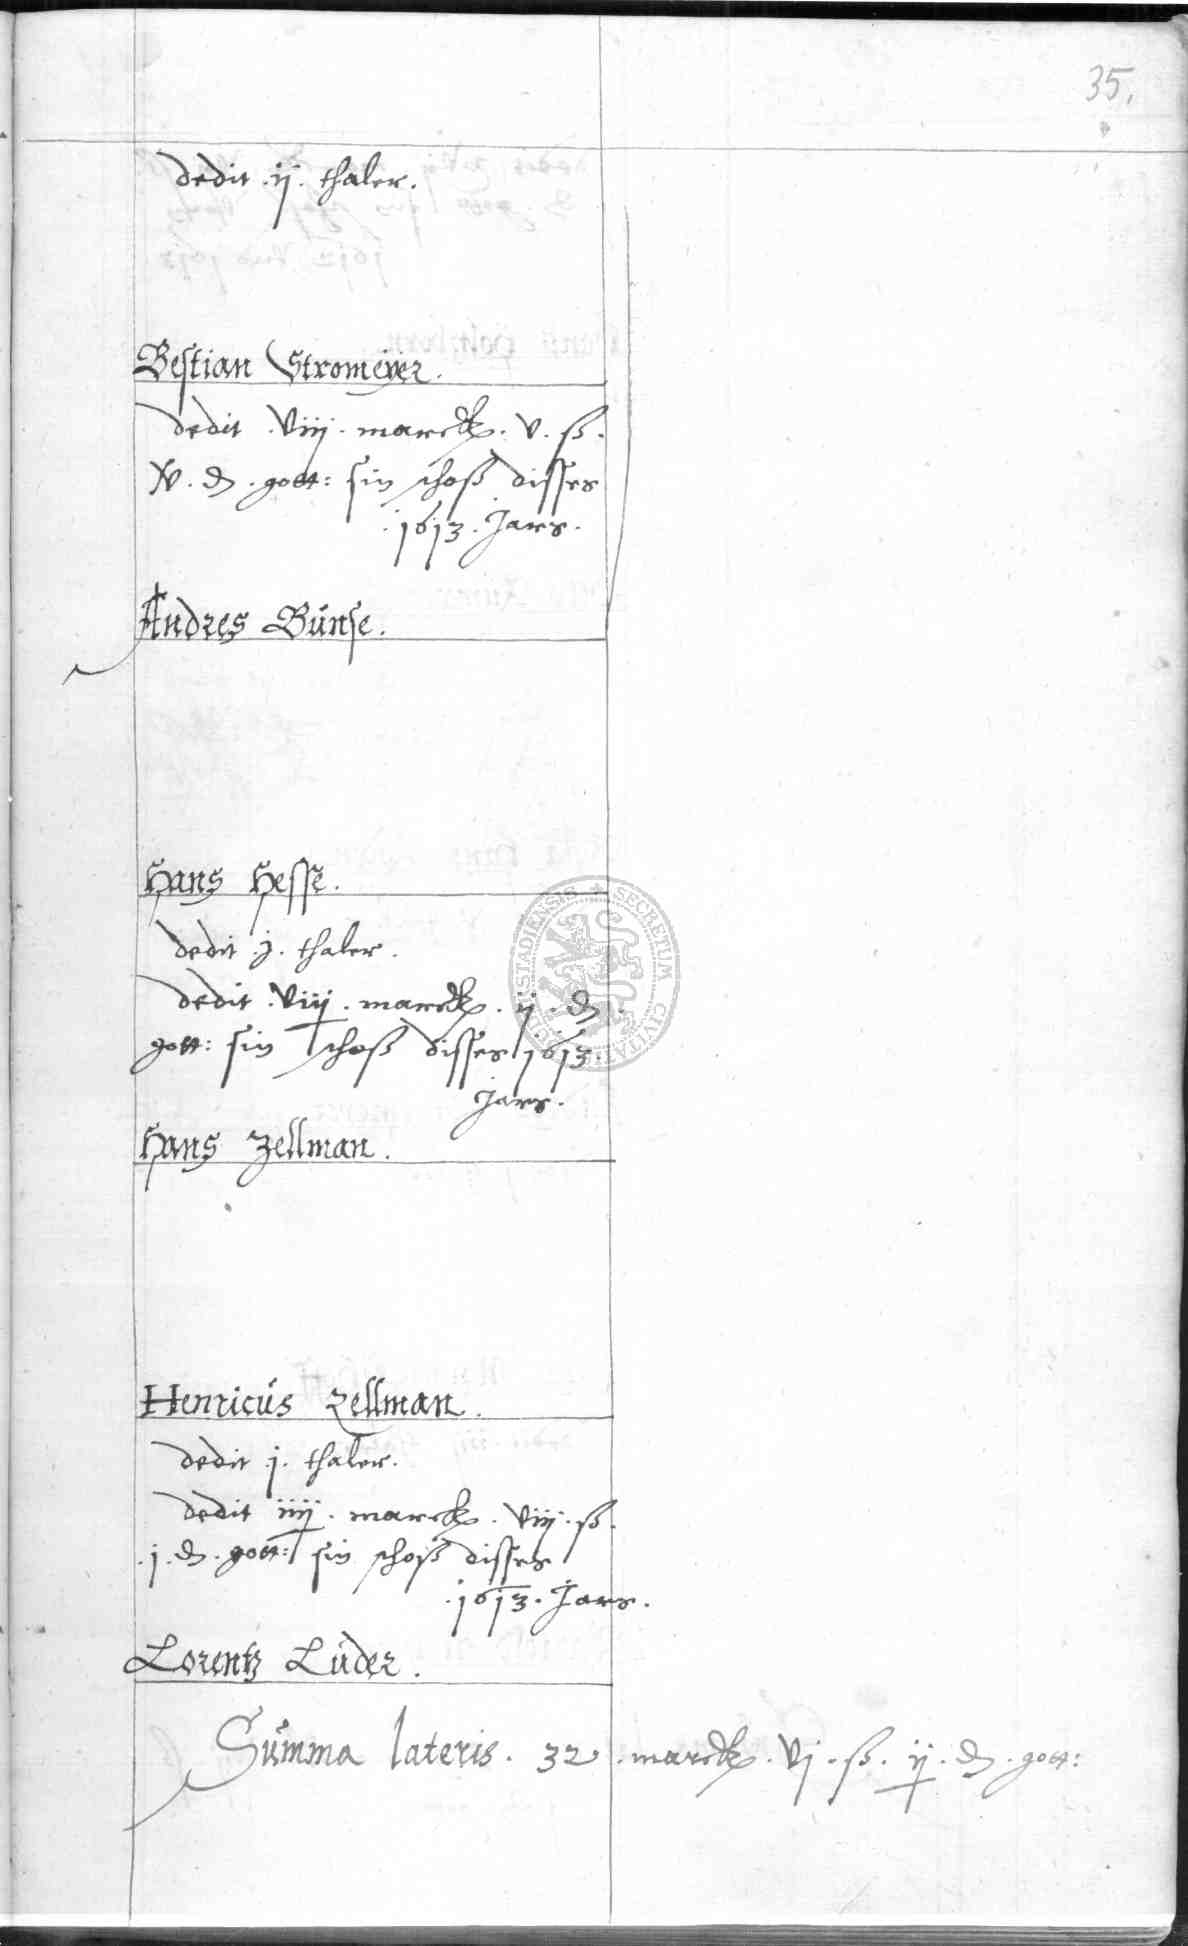 35.
dedit .ij. thaler.
Bestian Stromeÿer.
dedit .viij. marck. v. ß.
iv. d. gott: sin schoß disses
.1613. Jars.
Andres Bunse.
Hans Hesse.
dedit .j. thaler.
dedit .viij. marck. ij. d.
gott: sin schoß disses 1613.
Jars.
Hans Zellman.
Henricus Zellman.
dedit .j. thaler.
dedit iiij. marck. viij. ß.
.j. d. gott: sin schoß disses
.1613. Jars.
Lorentz Luder.
Summa lateris. 32 .marck. vj. ß. ij. d. gott:
SECRETUM CIVITATIS